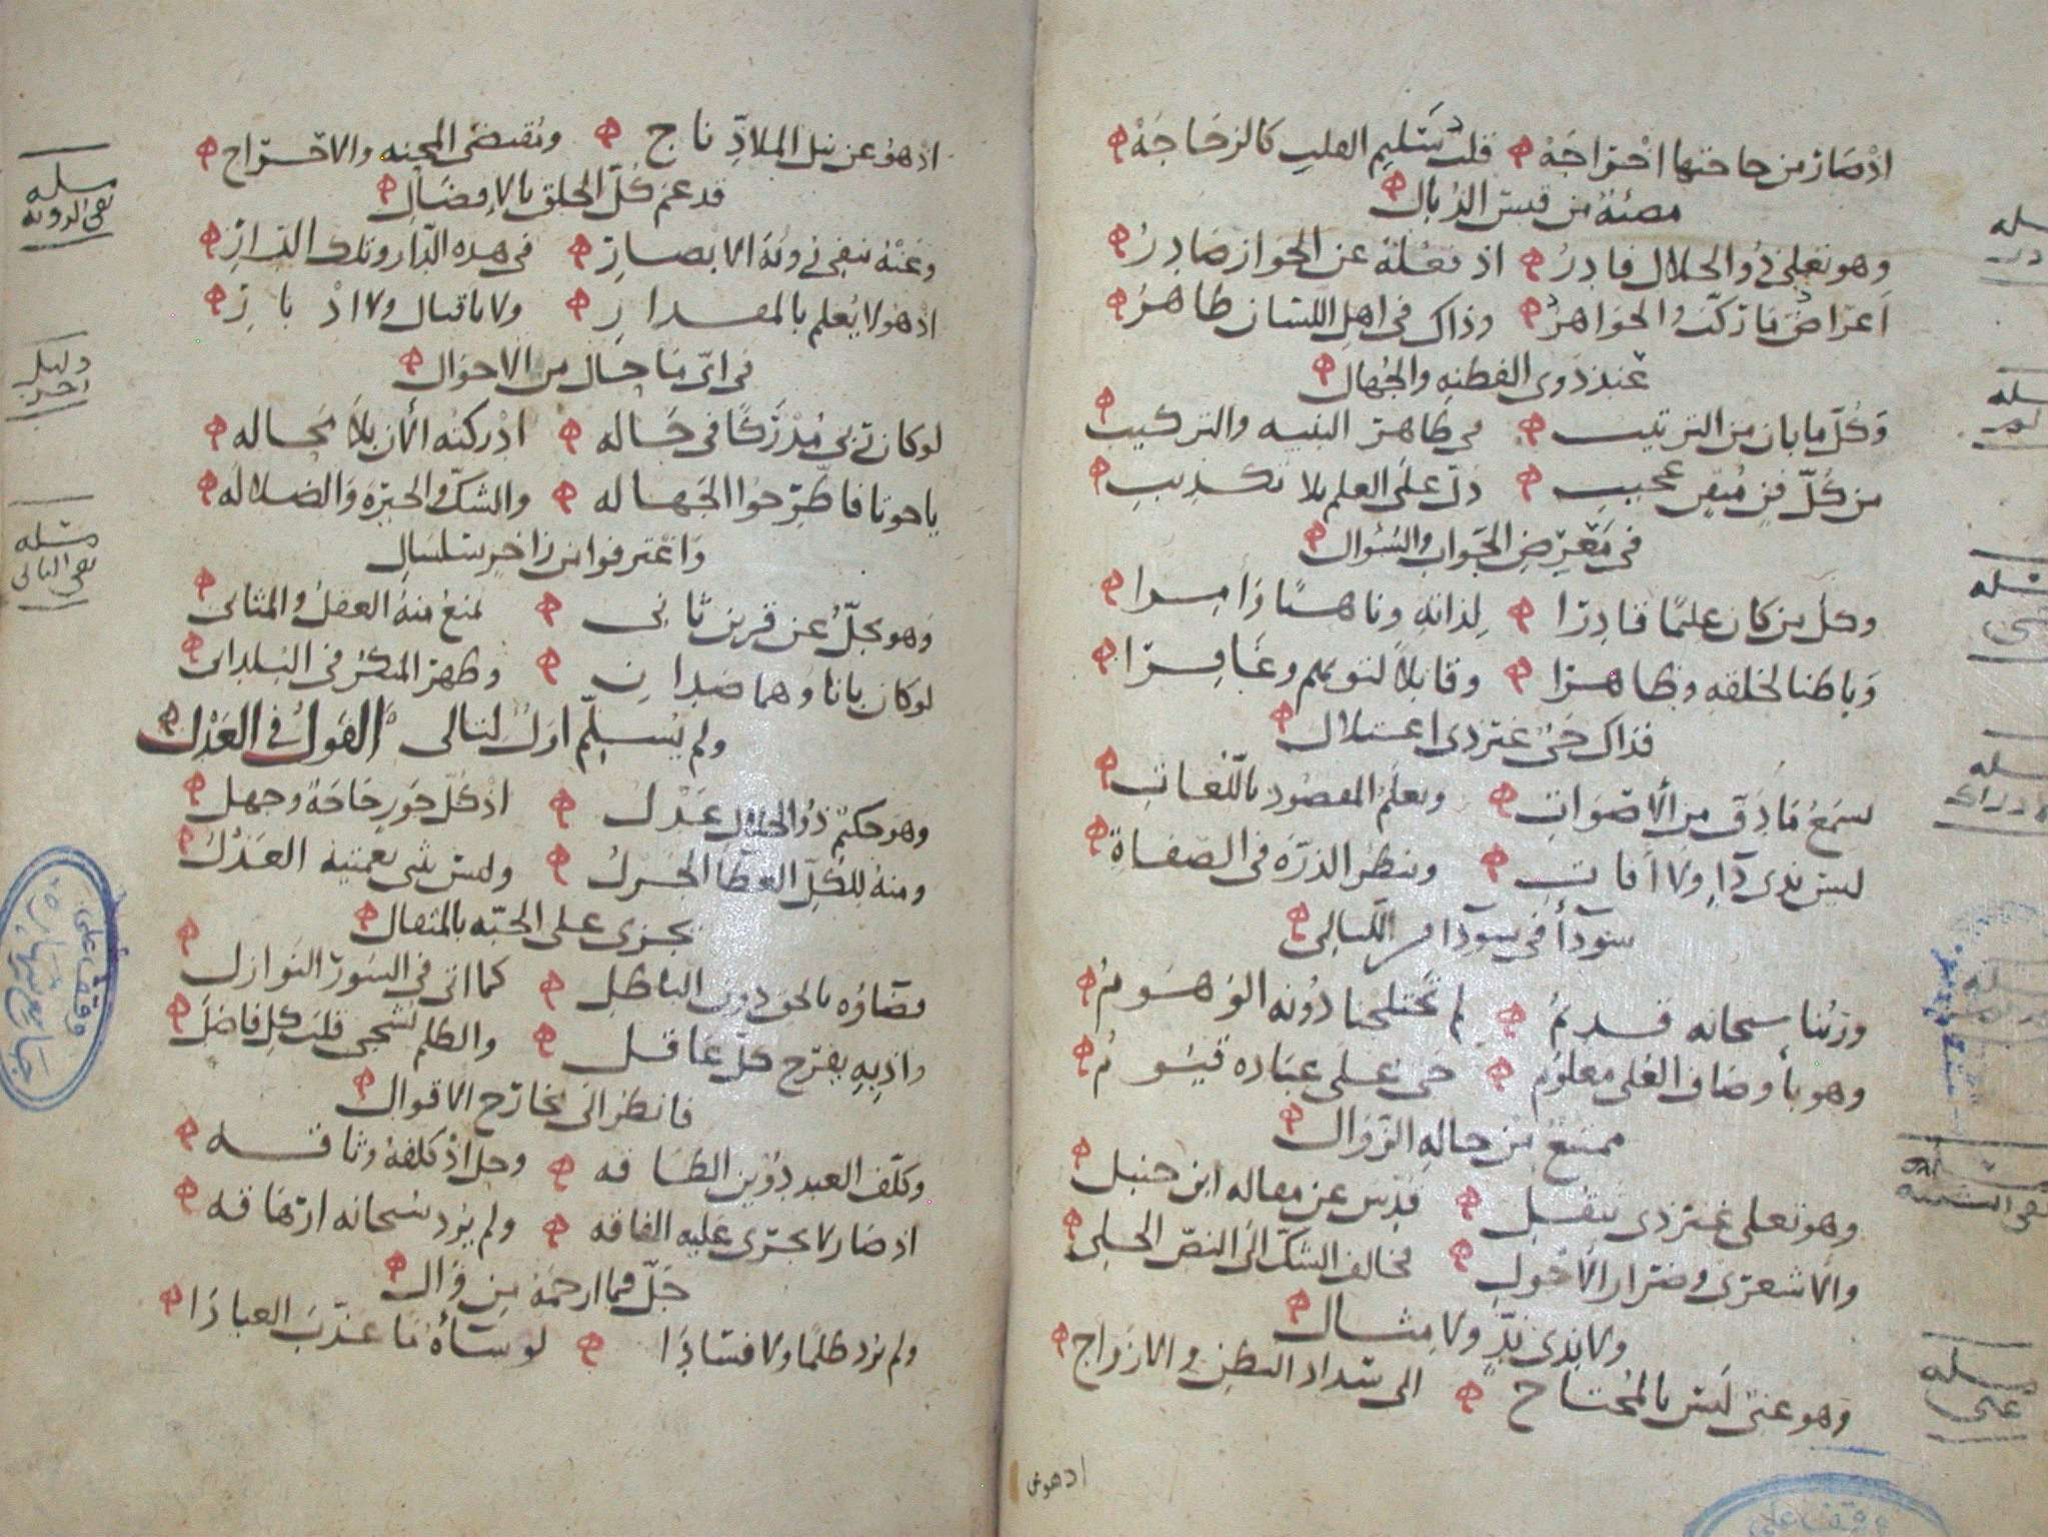 اذ صار من حاجتها اخراجه قلب سليم القلب كالزجاجه
مضئة من قبس الذبال
وهو تعلى ذو الجلال قادر اذ فعله عن الجواز صادر
اعراض ما ركّب والجواهر وذاك في اهل اللسان ظاهر
عند ذوى الفطنه والجهال
وكل ما بان من الترتيب في ظاهر البنيه والتركيب
من كل فن متقن عجيب دل على العلم بلا تكذيب
في معرض الجواب والسؤال
وكل من كان عليما قادرا لذاته وناهيا وامرا
وباطنا لخلقه وظاهرا وقابلا لتوبهم وغافرا
فذاك حي غير ذى اعتلال
يسمع ما دق من الأصوات ويعلم المقصود باللغات
ليس بذى داء ولا آفات وينظر الذره في الصفاة
سودا في سود الليالي
وربنا سبحانه قديم لم تختلجنا دونه الوهوم
وهو بأوصاف العلى معلوم حى على عباده قيوم
ممتنع من حاله الزوال
وهو تعلى غير ذى تنقل قدس عن مقاله ابن حنبل
والاشعرى وضرار الأحول مخالف الشك الى النص الجلى
ولا بذى ندٍّ ولا مثال
وهو غنى ليس بالمحتاج الى سداد البطن والازواج
اذ هو عن
اذ هو عن نيل الملاذِّ ناج وتقتضى المحنه والاخراج
قد عم كل الخلق بالافضال
وعنه ننفى رؤية الابصار في هذه الدار وتلك الدار
اذ هو لا يعلم بالمقدار ولا باقبال ولا ادبار
في اى ما حال من الاحوال
لو كان ربى مدركا في حاله ادركته الان بلا محاله
يا خوتا فاطرحوا الجهاله والشك والحيره والضلاله
واغترفوا من زاخر سلسال
وهو يجل عن قرين ثانى لمنع منه العقل والمثانى
لو كان بانا وهما ضدان وظهر المنكر في البلدان
ولم يسلم اول لتالى القول في العدل
وهو حكيم ذو الجلال عدل اذ كل جور حاجة وجهل
ومنه للكل العطا الجزل وليس شى يعتميه العدل
يجزى على الحبه بالمثقال
قضاؤه بالحق دون الباطل كما اتى في السور النوازل
واذ به يفرح كل عاقل والظلم يشجى قلب كل فاضل
فانظر الى مخارج الاقوال
وكلف العبد دوين الطاقه وحل اذ كلفه وثاقه
اذ صار لا تجرى عليه الفاقه ولم يرد سبحانه ارهاقه
جل فما ارحمه من وال
ولم يرد ظلما ولا فسادا لو شاءه ما عذب العبادا
مسله
نفى الرويه
دليل
اخر
مسله
نفى الثانى
مسله
غنى